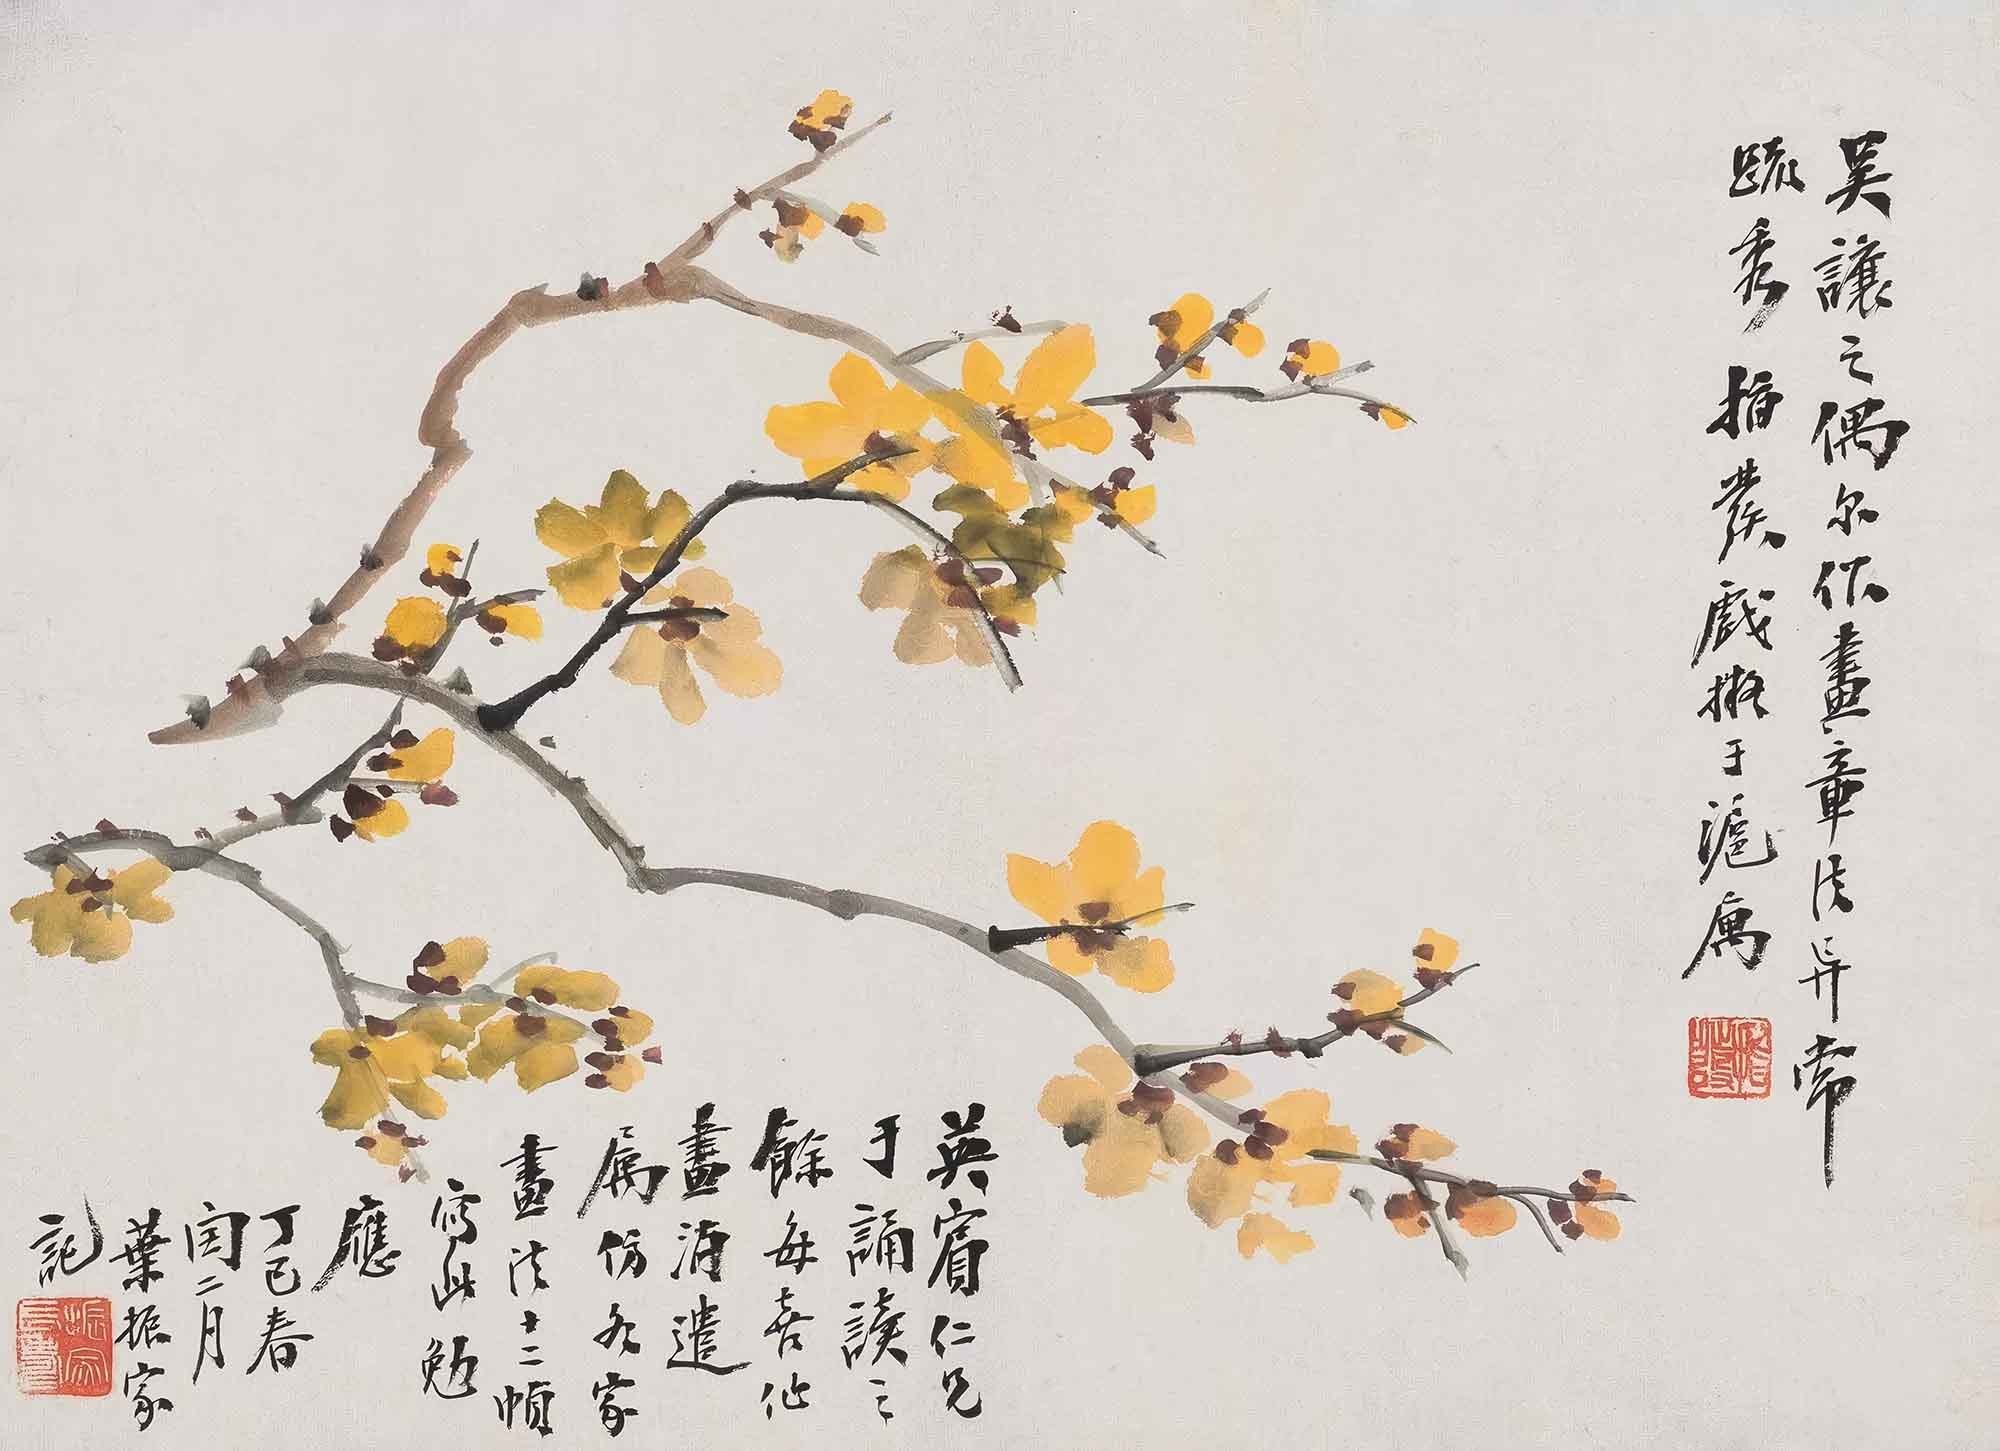 吴讓之偶尔作畫章法异常
疏秀指叢戲擬于滬寓
英賓仁兄
于誦讀之
餘每喜作
畫消遣
属仿各家
畫法十二幀
寫此勉
應
丁巳春
闰二月
葉振家
記